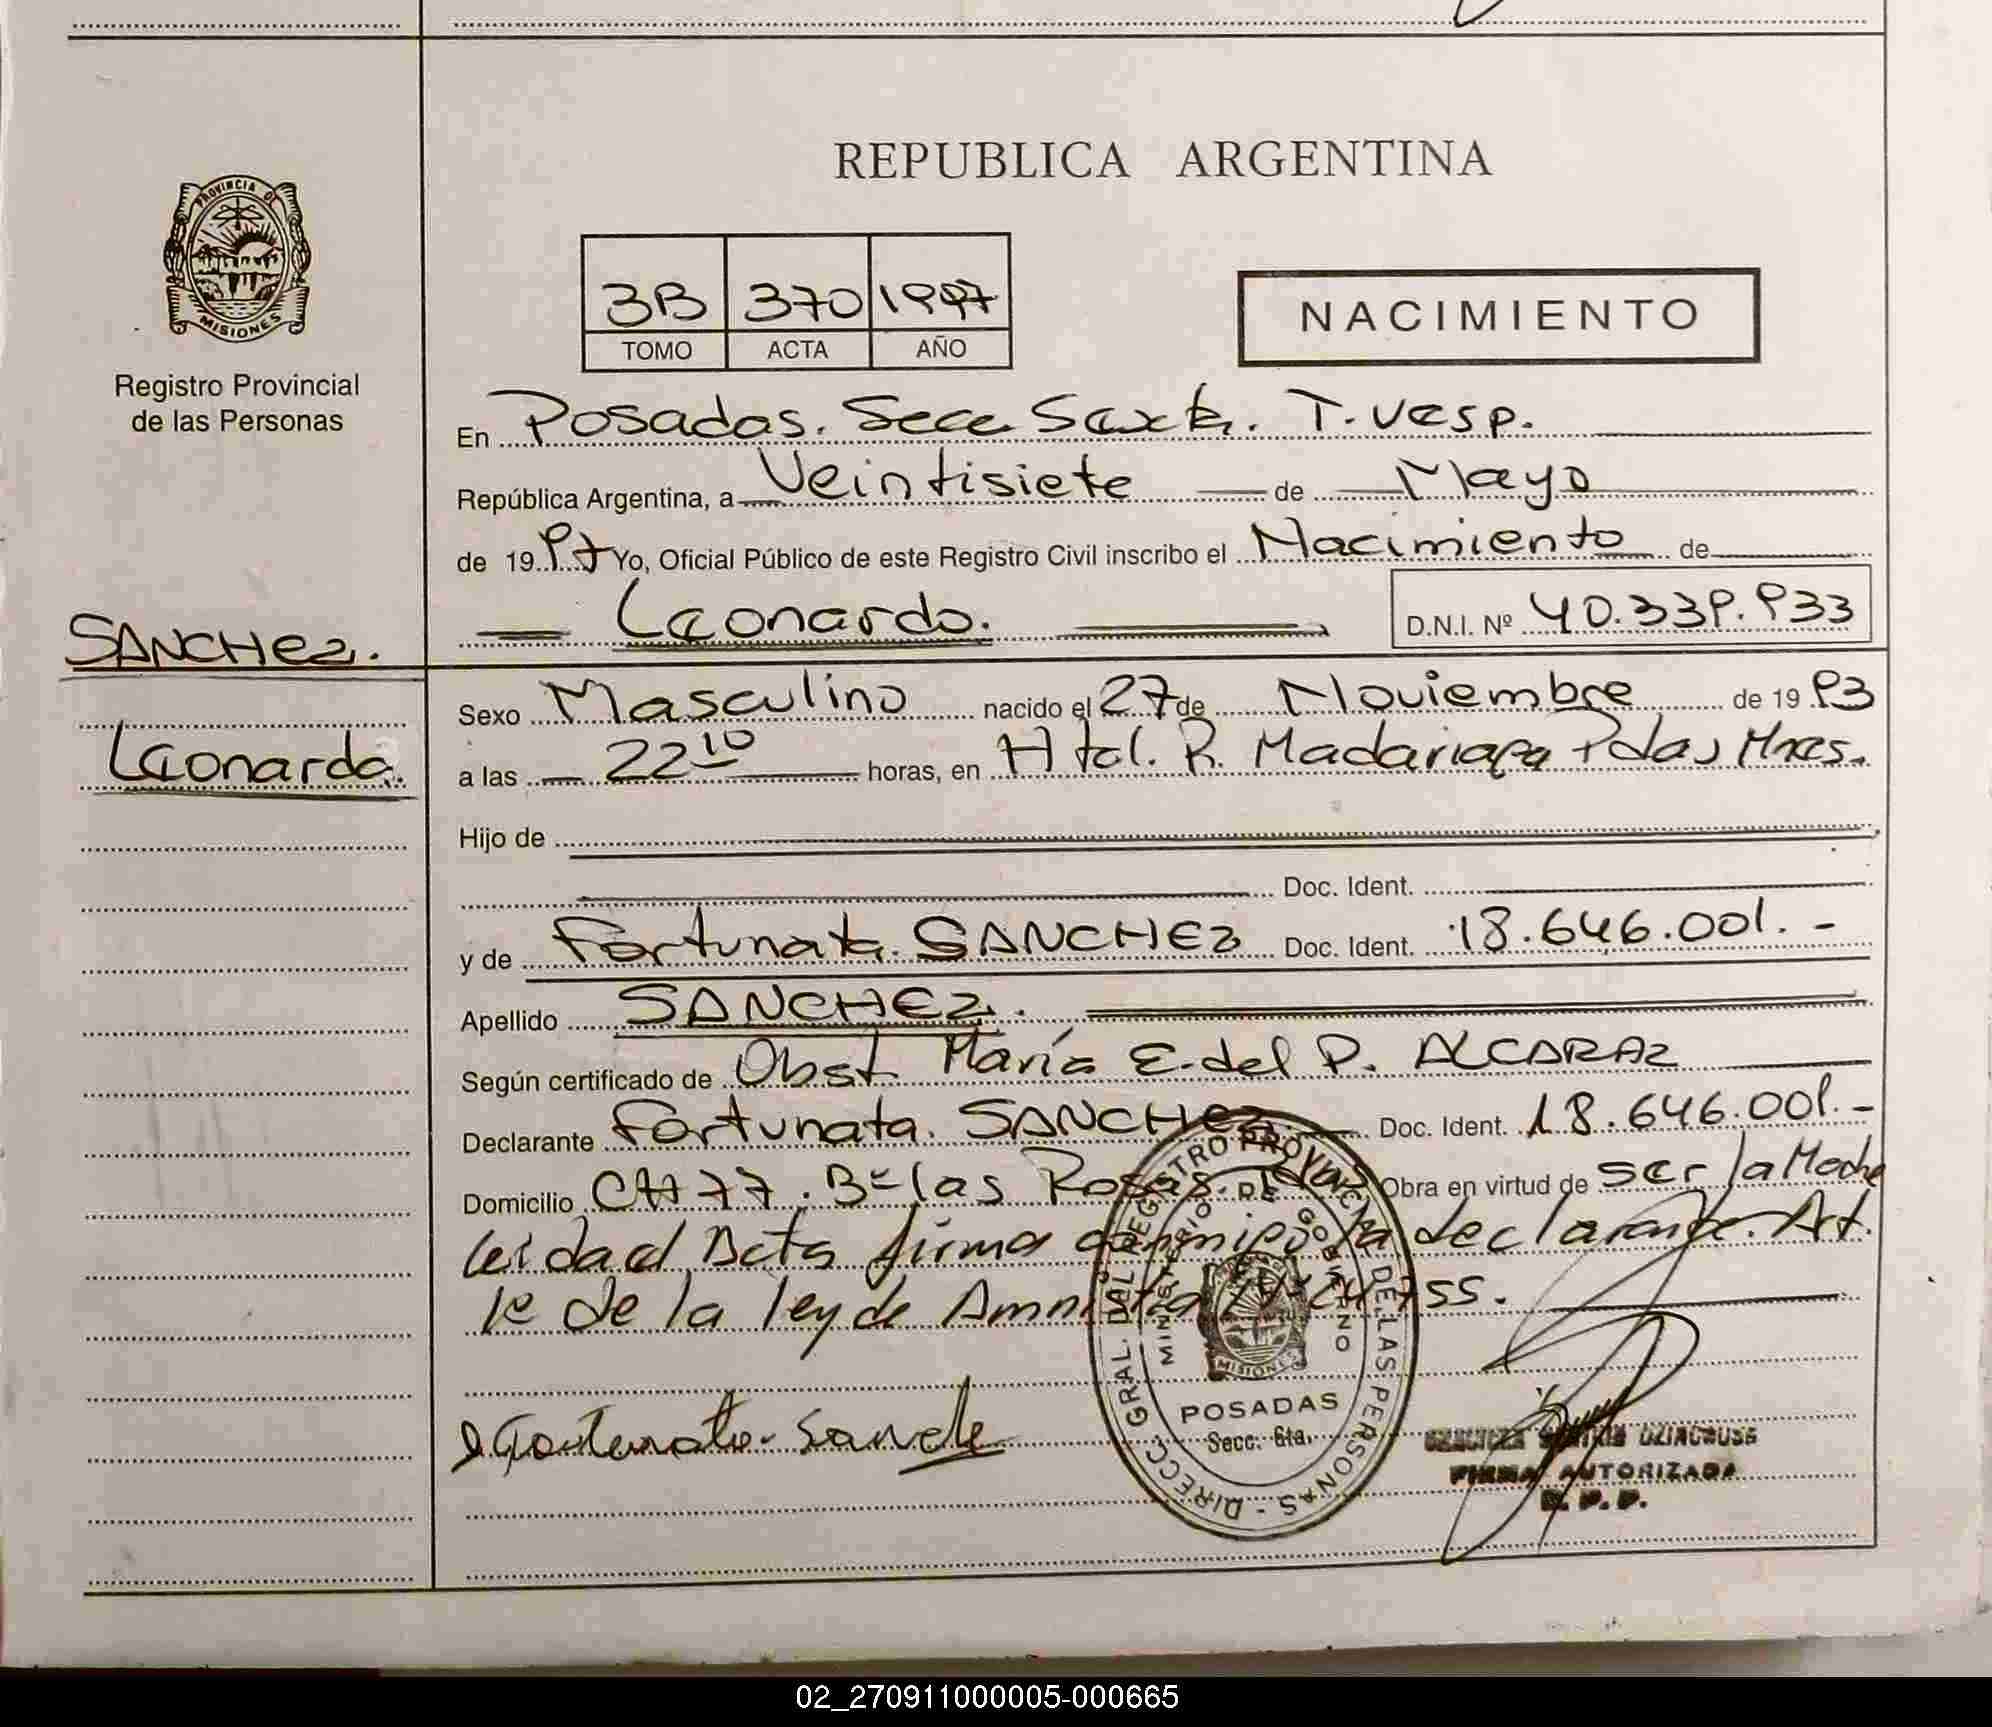 REPUBLICA ARGENTINA
PROVINCIA DE
MISIONES
Registro Provincial
de las Personas
3B 370 1997
TOMO ACTA AÑO
NACIMIENTO
En Posadas. Secc Sexta. T. Vesp.
República Argentina, a Veintisiete de Mayo
de 1997 Yo, Oficial Público de este Registro Civil inscribo el Nacimiento de
Leonardo. D.N.I. Nº 40.339.933
SANCHEZ.
Leonardo.
Sexo Masculino nacido el 27 de Noviembre de 1993
a las 22 10 horas, en Htal. R. Madariaga Pdas Mnes.
Hijo de
Doc. Ident.
y de Fortunata. SANCHEZ Doc. Ident. 18.646.001.-
Apellido SANCHEZ.
Según certificado de Obst María E. del P. ALCARAZ
Declarante Fortunata. SANCHEZ Doc. Ident. 18.646.001.-
Domicilio CH 77. Bº las Rosas. Obra en virtud de ser la Madre
Leida el Acta firma conmigo la declarante. Art.
1º de la ley de Amnistia
DIRECC. GRAL. DEL REGISTRO PROVINCIAL DE LAS PERSONAS -
MINISTERIO DE GOBIERNO
MISIONES
POSADAS
Secc: 6ta.
FIRMA AUTORIZADA
R. P. P.
02_270911000005-000665